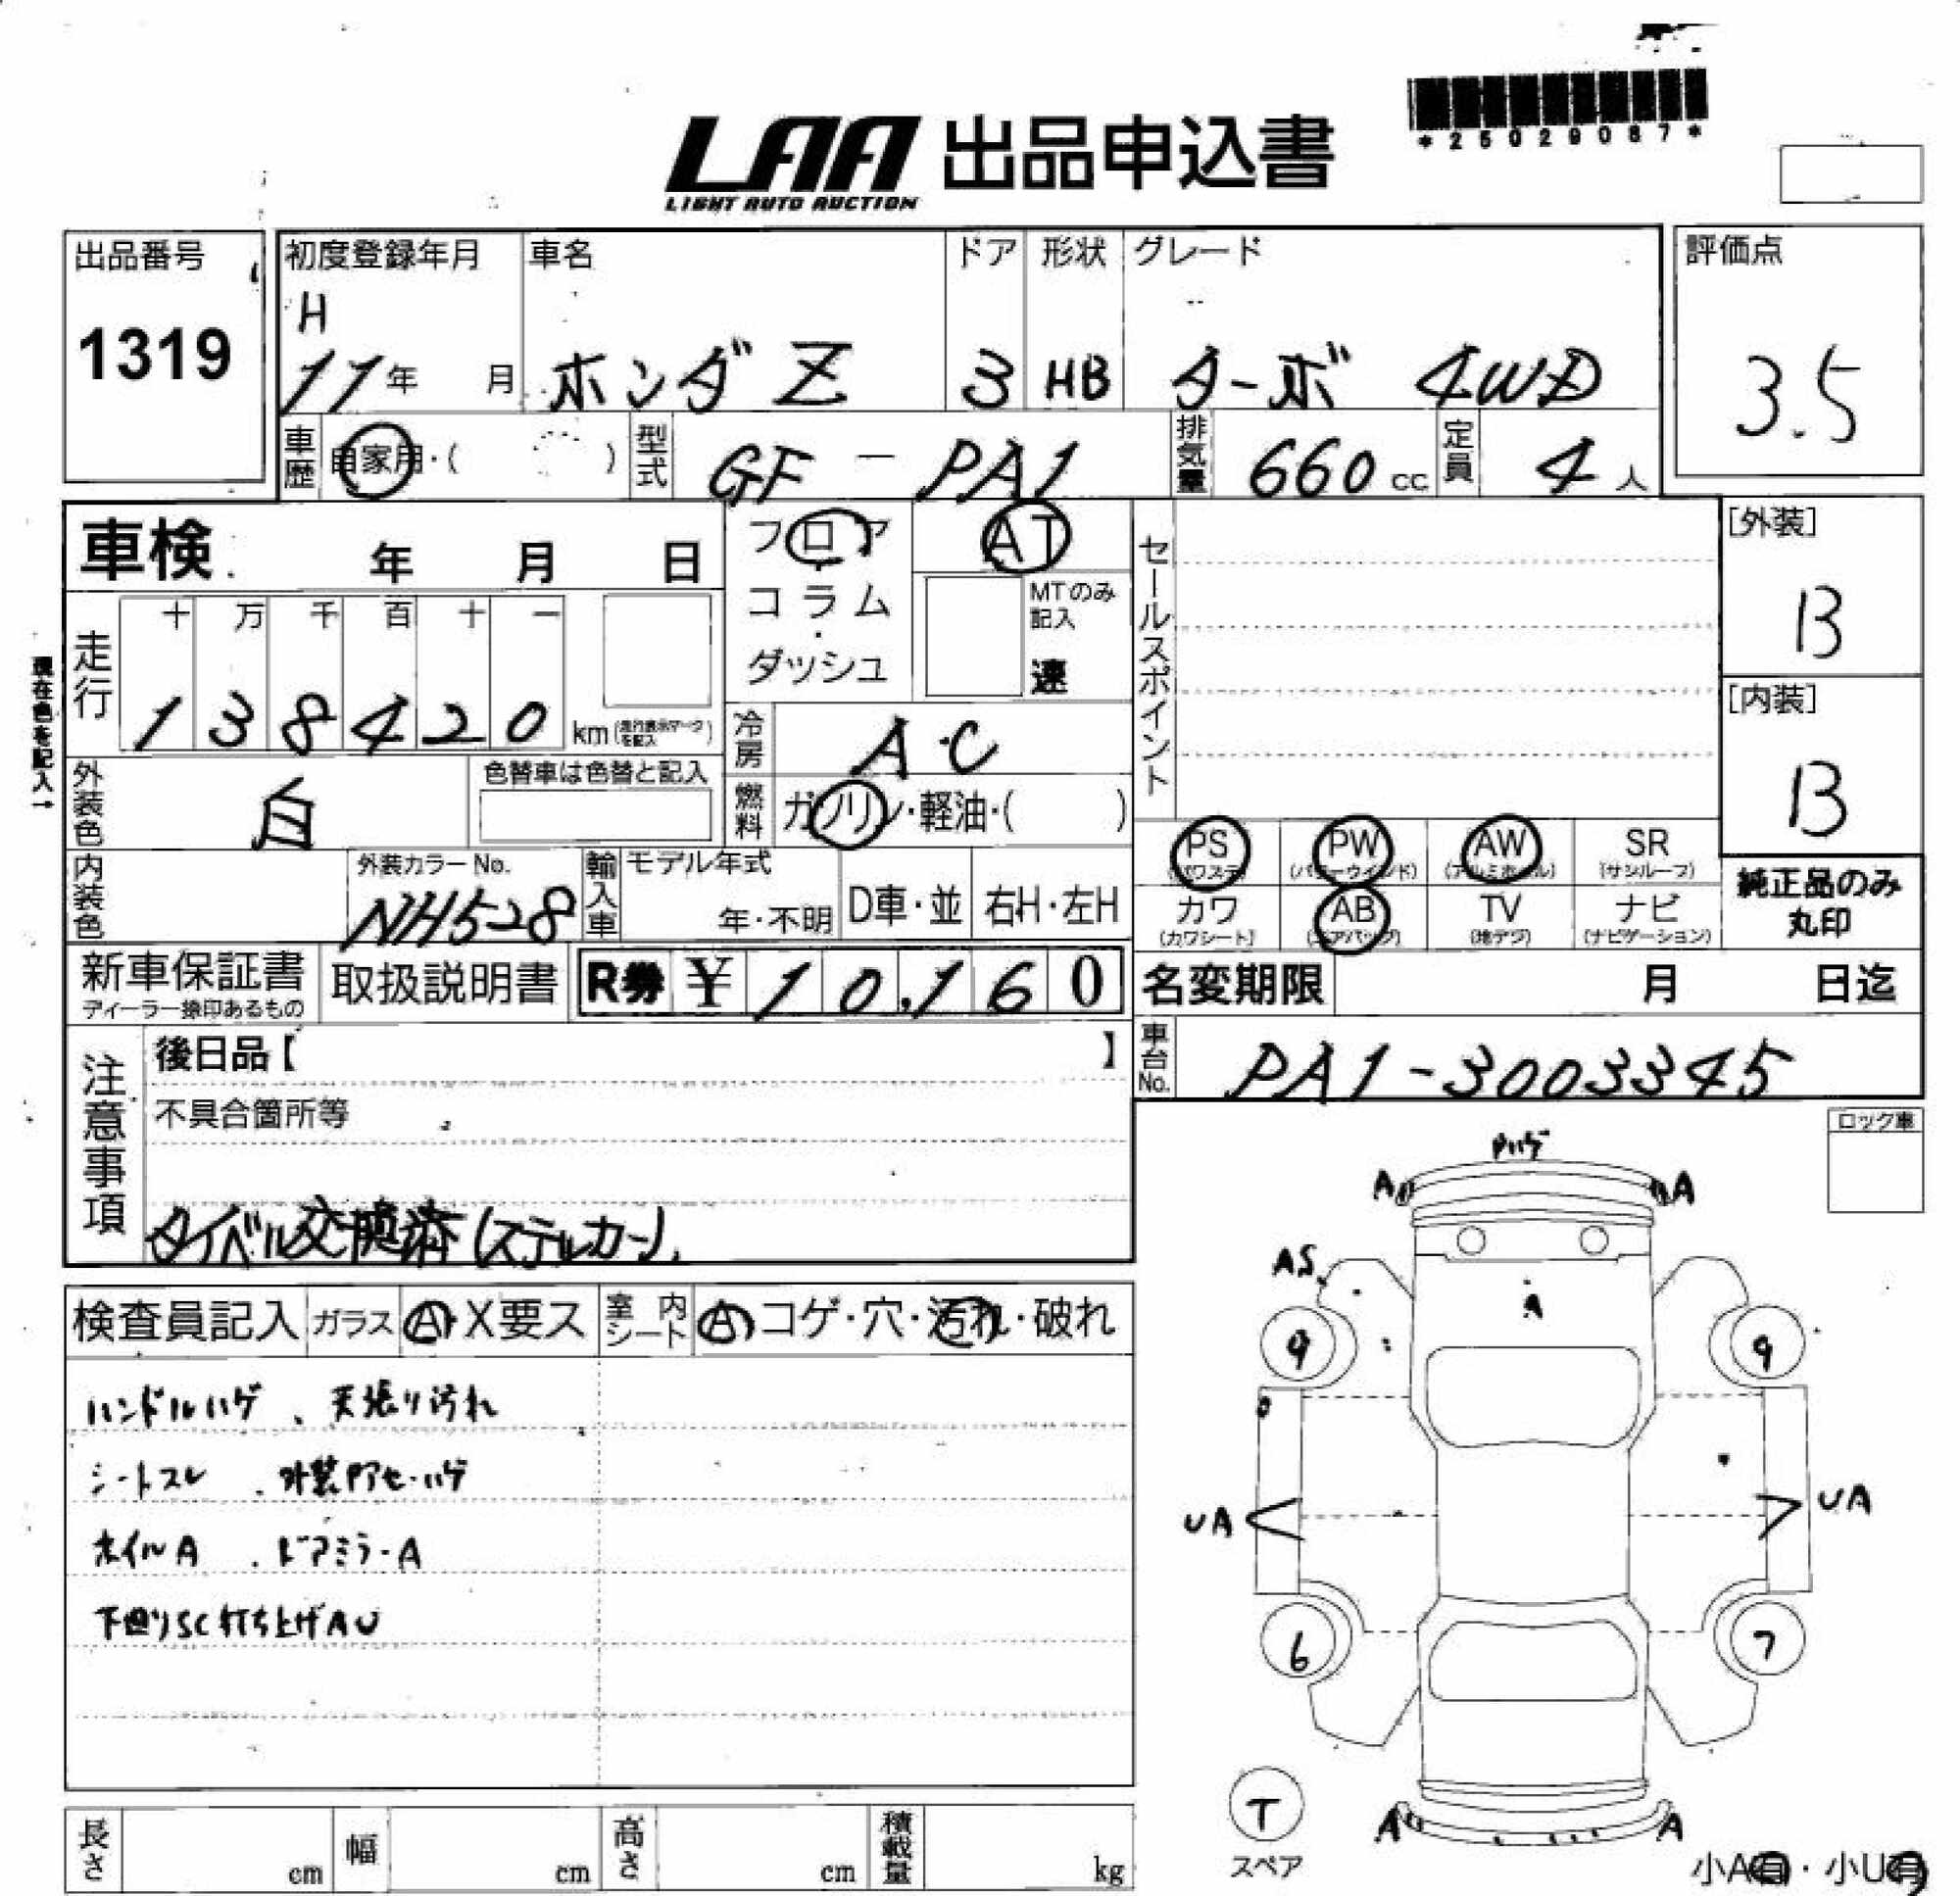 *25029087*
LAA 出品申込書
LIGHT AUTO AUCTION
出品番号
1319
初度登録年月
H
11年 月
車名
ホンダ Z
ドア
3
形状
HB
グレード
ターボ 4WD
評価点
3.5
車歴
自家用・( )
型式
GF - PA1
排気量
660 cc
定員
4 人
車検 年 月 日
フロア
コラム
・
ダッシュ
AT
MTのみ
記入
速
セールスポイント
[外装]
B
[内装]
B
現在色を記入→
走行
十 万 千 百 十 一
1 3 8 4 2 0 km (走行表示マークを記入)
冷房
A・C
外装色
白
色替車は色替と記入
燃料
ガソリン・軽油・( )
PS
(パワステ)
PW
(パワーウインド)
AW
(アルミホイル)
SR
(サンルーフ)
カワ
(カワシート)
AB
(エアバッグ)
TV
(地デジ)
ナビ
(ナビゲーション)
純正品のみ
丸印
内装色
外装カラーNo.
NH528
輸入車
モデル年式
年・不明
D車・並
右H・左H
新車保証書
ディーラー捺印あるもの
取扱説明書
R券 ¥ 10,160
名変期限 月 日迄
車台No.
PA1-3003345
注意事項
後日品【 】
不具合箇所等
タイベル交換済(ステルカー)
ロック車
検査員記入
ガラス
A・X要ス
室内シート
A・コゲ・穴・汚れ・破れ
ハンドルハゲ、天張り汚れ
シートスレ 、外装Pアセ・ハゲ
ホイルA 、ドアミラーA
下回りSC打ち上げAU
Pハゲ
A
A
AS
A
9
9
UA
UA
6
7
T
スペア
A
A
小A有・小U有
長さ cm
幅 cm
高さ cm
積載量 kg